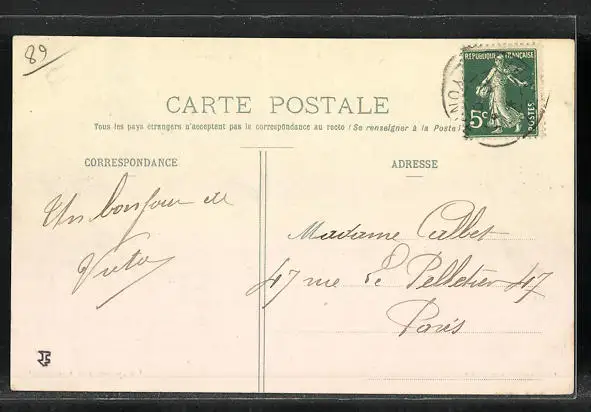 89
RÉPUBLIQUE FRANÇAISE
5c
POSTES
CARTE POSTALE
Tous les pays étrangers n'acceptent pas la correspondance au recto (Se renseigner à la Poste)
CORRESPONDANCE
ADRESSE
Un bonjour de
Madame Calbet
47 rue Le Pelletier 47
Paris